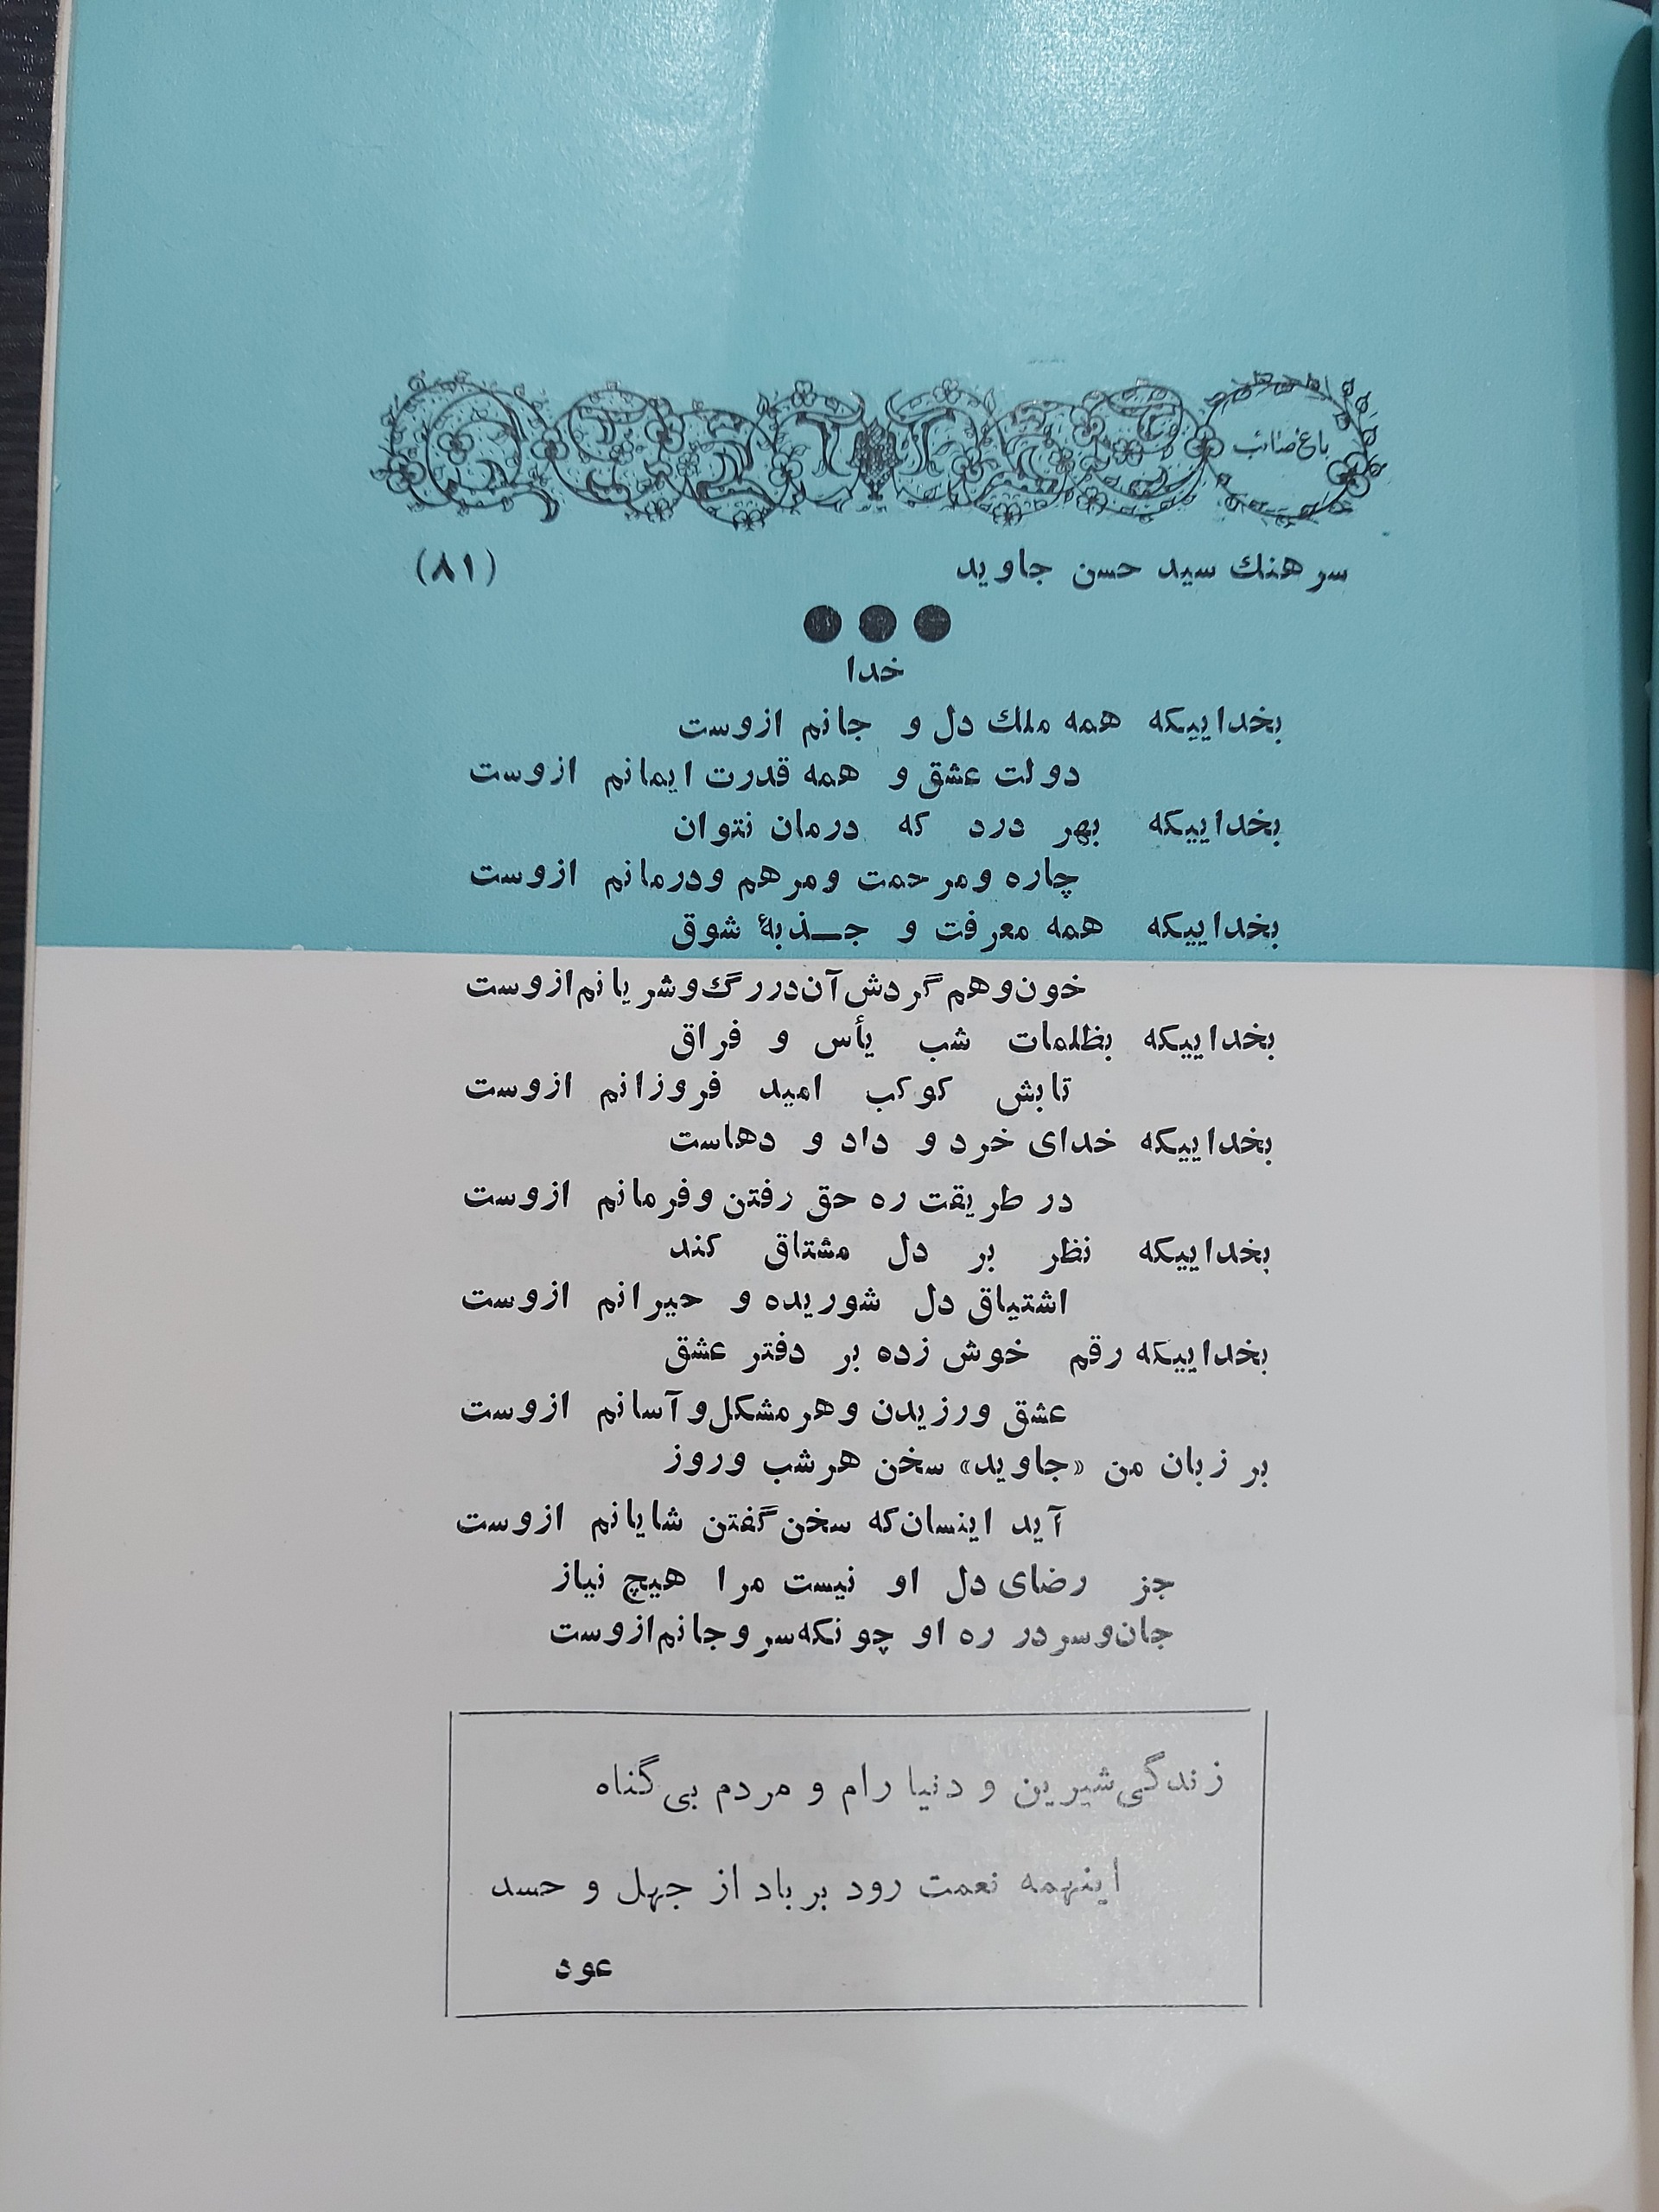 باغ صائب
سرهنك سيد حسن جاويد (۸۱)
خدا
بخداییکه همه ملك دل و جانم ازوست
دولت عشق و همه قدرت ایمانم ازوست
بخداییکه بهر درد که درمان نتوان
چاره و مرحمت و مرهم و درمانم ازوست
بخداییکه همه معرفت و جـذبهٔ شوق
خون و هم گردش آن در رگ و شریانم ازوست
بخداییکه بظلمات شب یأس و فراق
تابش کوکب امید فروزانم ازوست
بخداییکه خدای خرد و داد و دهاست
در طریقت ره حق رفتن و فرمانم ازوست
بخداییکه نظر بر دل مشتاق کند
اشتیاق دل شوریده و حیرانم ازوست
بخداییکه رقم خوش زده بر دفتر عشق
عشق ورزیدن و هر مشکل و آسانم ازوست
بر زبان من «جاوید» سخن هر شب و روز
آید اینسان که سخن گفتن شایانم ازوست
جز رضای دل او نیست مرا هیچ نیاز
جان و سر در ره او چونکه سر و جانم ازوست
زندگی شیرین و دنیا رام و مردم بی گناه
اینهمه نعمت رود بر باد از جهل و حسد
عود